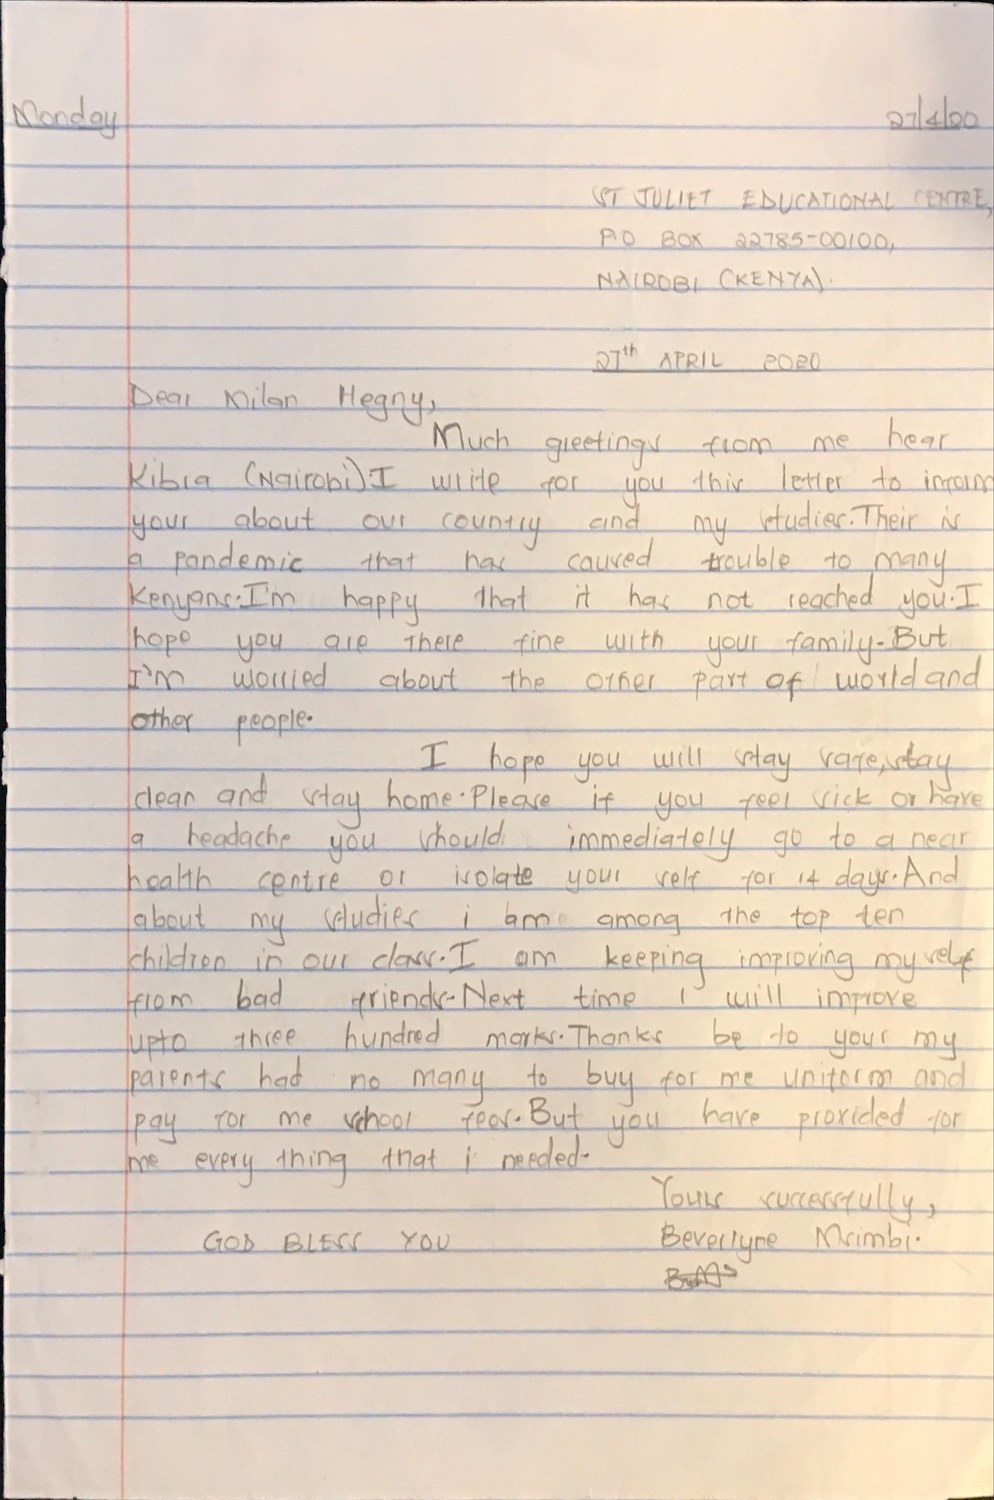 Monday 27/4/20
ST JULIET EDUCATIONAL CENTRE,
P.O BOX 22785-00100,
NAIROBI (KENYA).
27th APRIL 2020
Dear Milan Hegny,
Much greetings from me hear
Kibra (Nairobi) I write for you this letter to inform
your about our country and my studies. Their is
a pandemic that has caused trouble to many
Kenyans. I'm happy that it has not reached you. I
hope you are there fine with your family. But
I'm worried about the other part of world and
other people.
I hope you will stay safe, stay
clean and stay home. Please if you feel sick or have
a headache you should immediately go to a near
health centre or isolate your self for 14 days. And
about my studies i am among the top ten
children in our class. I am keeping improving my self
from bad friends. Next time i will improve
upto three hundred marks. Thanks be to your my
parents had no many to buy for me uniform and
pay for me school fees. But you have provided for
me every thing that i needed.
Yours successfully,
GOD BLESS YOU Beverlyne Msimbi.